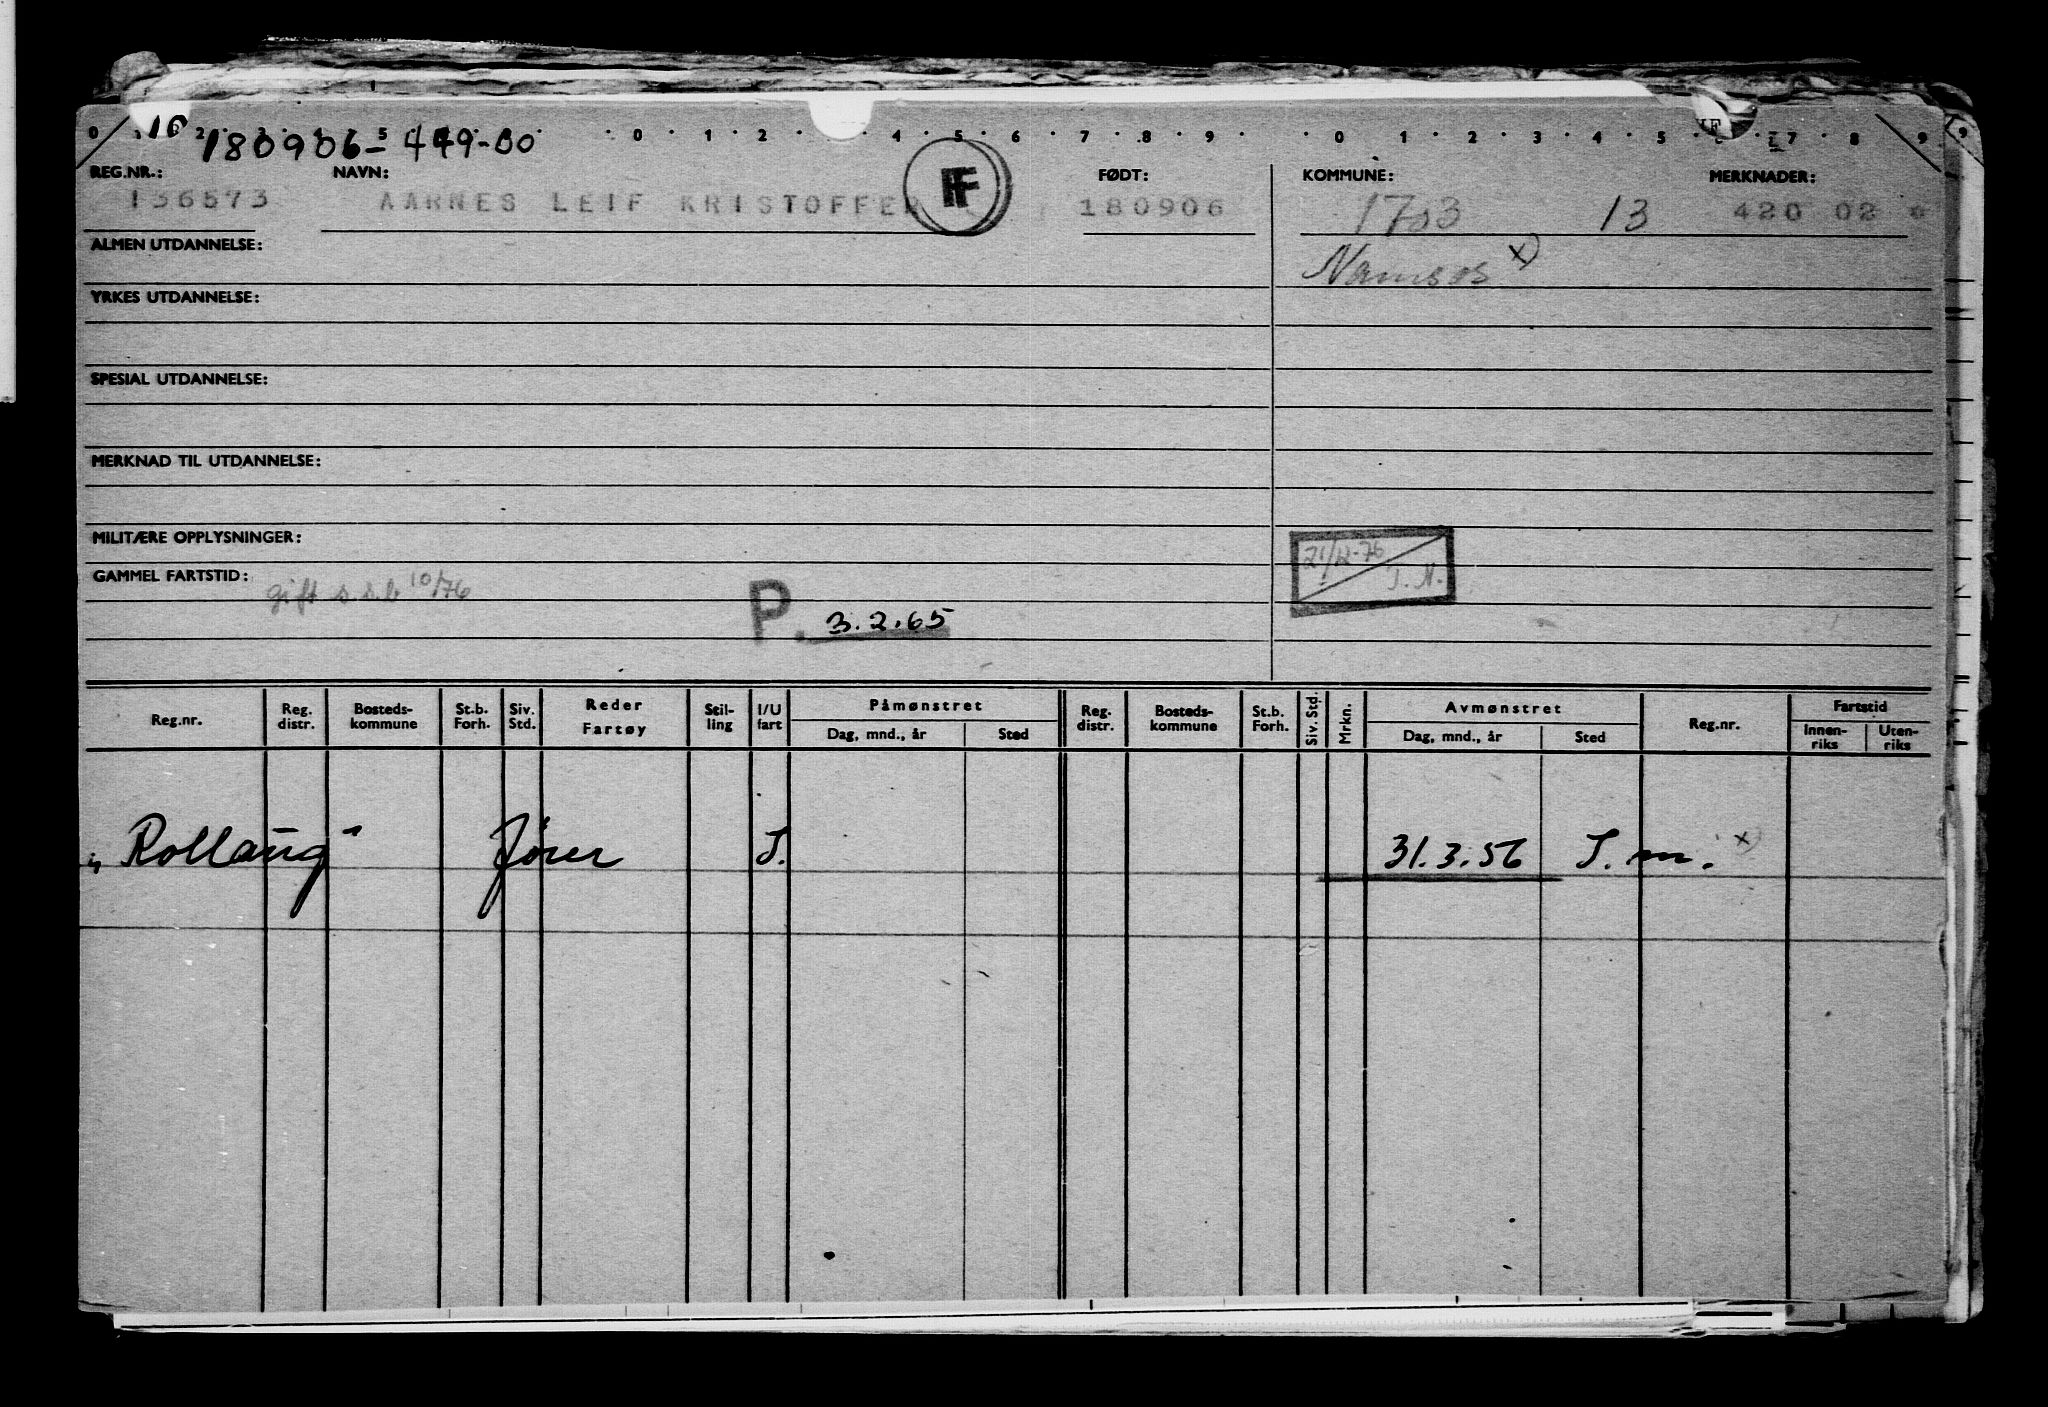 0 16 2 5 0 1 2 4 5 6 7 8 9 0 1 2 3 4 5 7 8 9
180906-449-00
REG.NR.: NAVN: FØDT: KOMMUNE: MERKNADER:
136573 AARNES LEIF KRISTOFFER FF 180906 1703 13 420 02
ALMEN UTDANNELSE: Namsos x)
YRKES UTDANNELSE:
SPESIAL UTDANNELSE:
MERKNAD TIL UTDANNELSE:
MILITÆRE OPPLYSNINGER:
21/12-76 T.N.
GAMMEL FARTSTID: gift s.s.b 10/76
P. 3.2.65
Reg.nr. Reg. distr. Bosteds-kommune St.b. Forh. Siv. Std. Reder Fartøy Stil-ling I/U fart Påmønstret Dag, mnd., år Sted Reg. distr. Bosteds-kommune St.b. Forh. Siv. Std. Mrkn. Avmønstret Dag, mnd., år Sted Reg.nr. Fartstid Innen-riks Uten-riks
"Rollaug" fører I. 31.3.56 I.m. x)